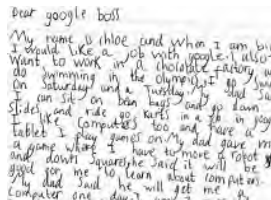 Dear google boss
My name is chloe and when I am
I would like a job with google. I also
want to work in a chocolate factory
do swimming in the olympics. I go
on Saturday and a Tuesday. My dad
I can sit on bean bags and go down
slides and ride go karts in a job in
I like computers too and have a
tablet I play games on. My dad gave me
a game where I have to move a robot
and down squares, he said it will be
good for me to learn about computers.
My dad said he will get me a
computer one day.